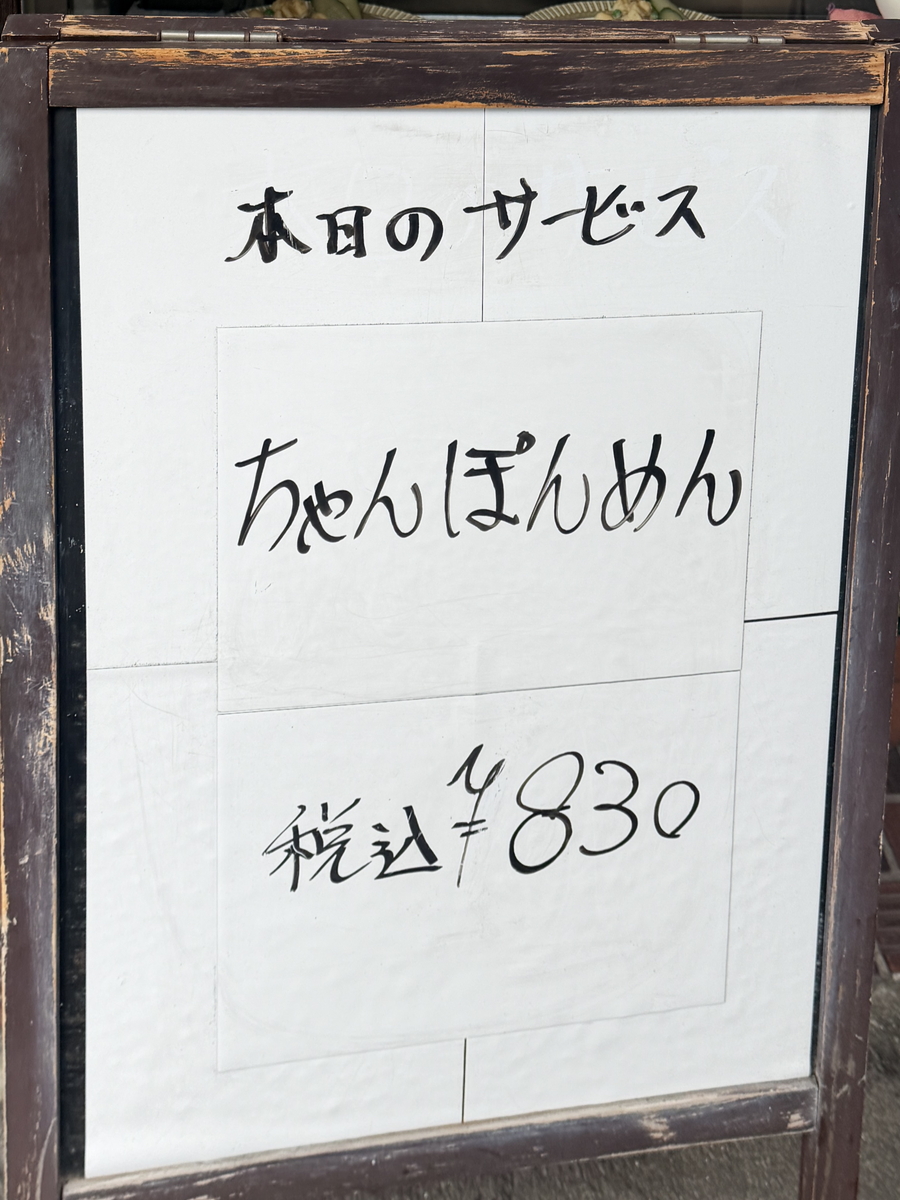 本日のサービス
ちゃんぽんめん
税込¥830